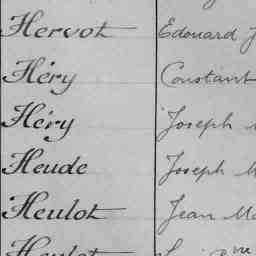 Hervot Edouard J
Héry Constant
Héry Joseph
Heude Joseph M
Heulot Jean Ma
Heulot